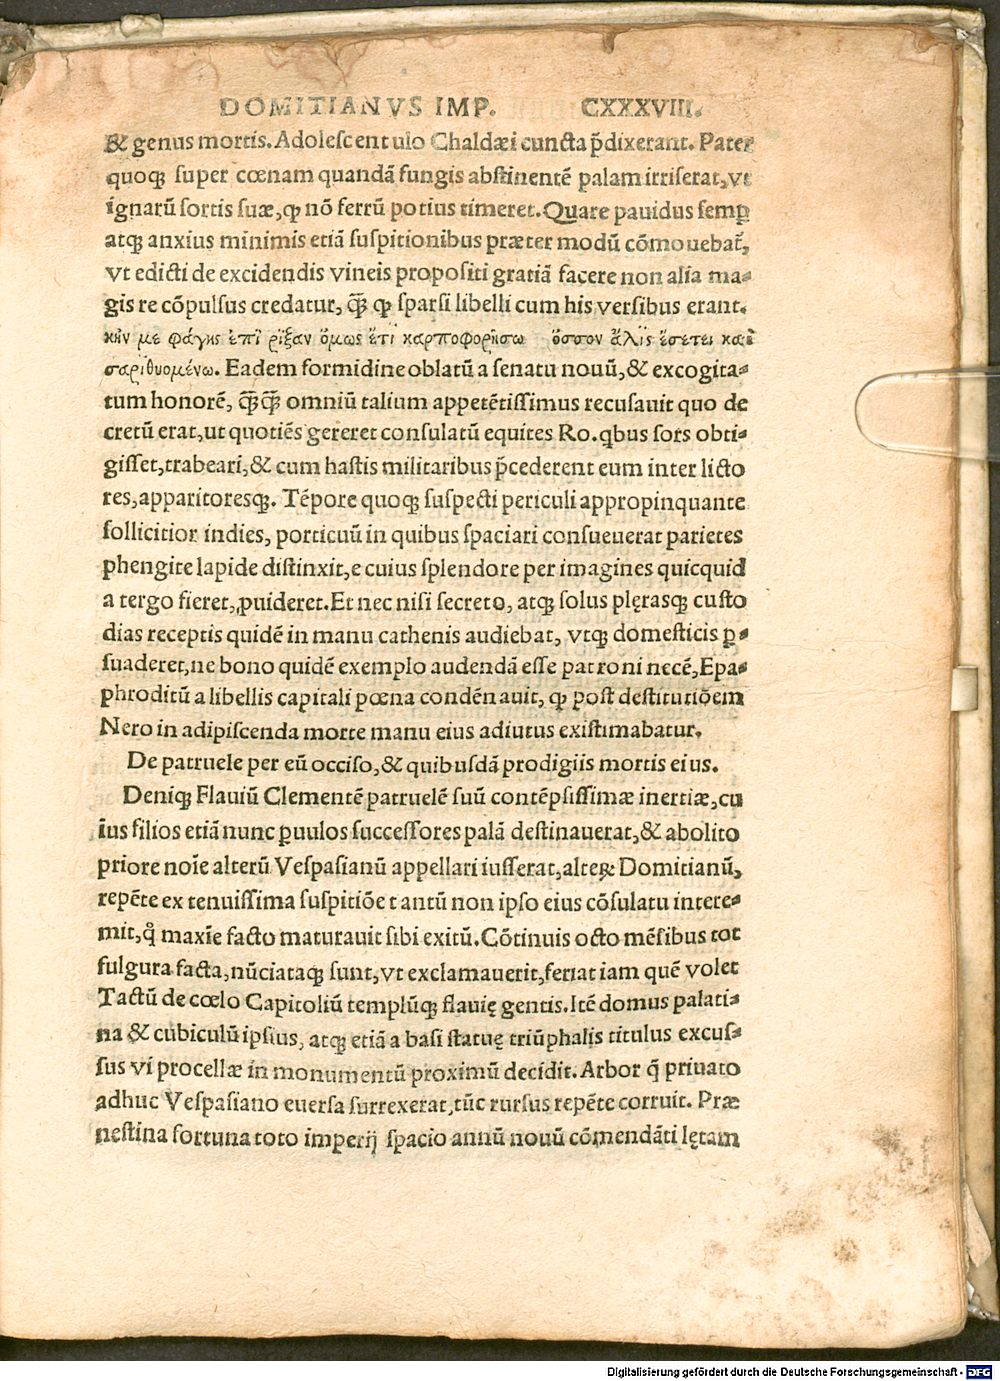 DOMITIANVS IMP. CXXXVIII.
& genus mortis. Adolescentulo Chaldæi cuncta p̄dixerant. Pater
quoqꝫ super cœnam quandā fungis abstinentē palam irriserat, vt
ignarū sortis suæ, ꝙ nō ferrū potius timeret. Quare pauidus semꝑ
atqꝫ anxius minimis etiā suspitionibus præter modū cōmouebat᷑,
vt edicti de excidendis vineis propositi gratiā facere non alia ma⸗
gis re cōpulsus credatur, q̄ꝫ ꝙ sparsi libelli cum his versibus erant.
κἠν με φάγης ἐπὶ ρίξαν ὅμως ἔτι καρποφορήσω ὅσσον ἅλις ἔσετει καὶ
σαριθυομένω. Eadem formidine oblatū a senatu nouū, & excogita⸗
tum honorē, q̄ꝫq̄ꝫ omniū talium appetētissimus recusauit quo de
cretū erat, ut quotiēs gereret consulatū equites Ro. qbus sors obti⸗
gisset, trabeari, & cum hastis militaribus p̄cederent eum inter licto
res, apparitoresqꝫ. Tēpore quoqꝫ suspecti periculi appropinquante
sollicitior indies, porticuū in quibus spaciari consueuerat parietes
phengite lapide distinxit, e cuius splendore per imagines quicquid
a tergo fieret, ꝓuideret. Et nec nisi secreto, atqꝫ solus plęrasqꝫ custo
dias receptis quidē in manu cathenis audiebat, vtqꝫ domesticis ꝑ⸗
suaderet, ne bono quidē exemplo audendā esse patroni necē, Epa⸗
phroditū a libellis capitali pœna condēnauit, ꝙ post destitutiōem
Nero in adipiscenda morte manu eius adiutus existimabatur.
De patruele per eū occiso, & quibusdā prodigiis mortis eius.
Deniqꝫ Flauiū Clementē patruelē suū contēpsissimæ inertiæ, cu
ius filios etiā nunc ꝑuulos successores palā destinauerat, & abolito
priore noīe alterū Vespasianū appellari iusserat, alteꝝ Domitianū,
repēte ex tenuissima suspitiōe tantū non ipso eius cōsulatu intere⸗
mit, qͦ maxīe facto maturauit sibi exitū. Cōtinuis octo mēsibus tot
fulgura facta, nūciataqꝫ sunt, vt exclamauerit, feriat iam quē volet
Tactū de cœlo Capitoliū templūqꝫ flauię gentis. Itē domus palati⸗
na & cubiculū ipsius, atqꝫ etiā a basi statuę triūphalis titulus excus⸗
sus vi procellæ in monumentū proximū decidit. Arbor q̄ priuato
adhuc Vespasiano euersa surrexerat, tūc rursus repēte corruit. Præ
nestina fortuna toto imperij spacio annū nouū cōmendāti lętam
Digitalisierung gefördert durch die Deutsche Forschungsgemeinschaft - DFG